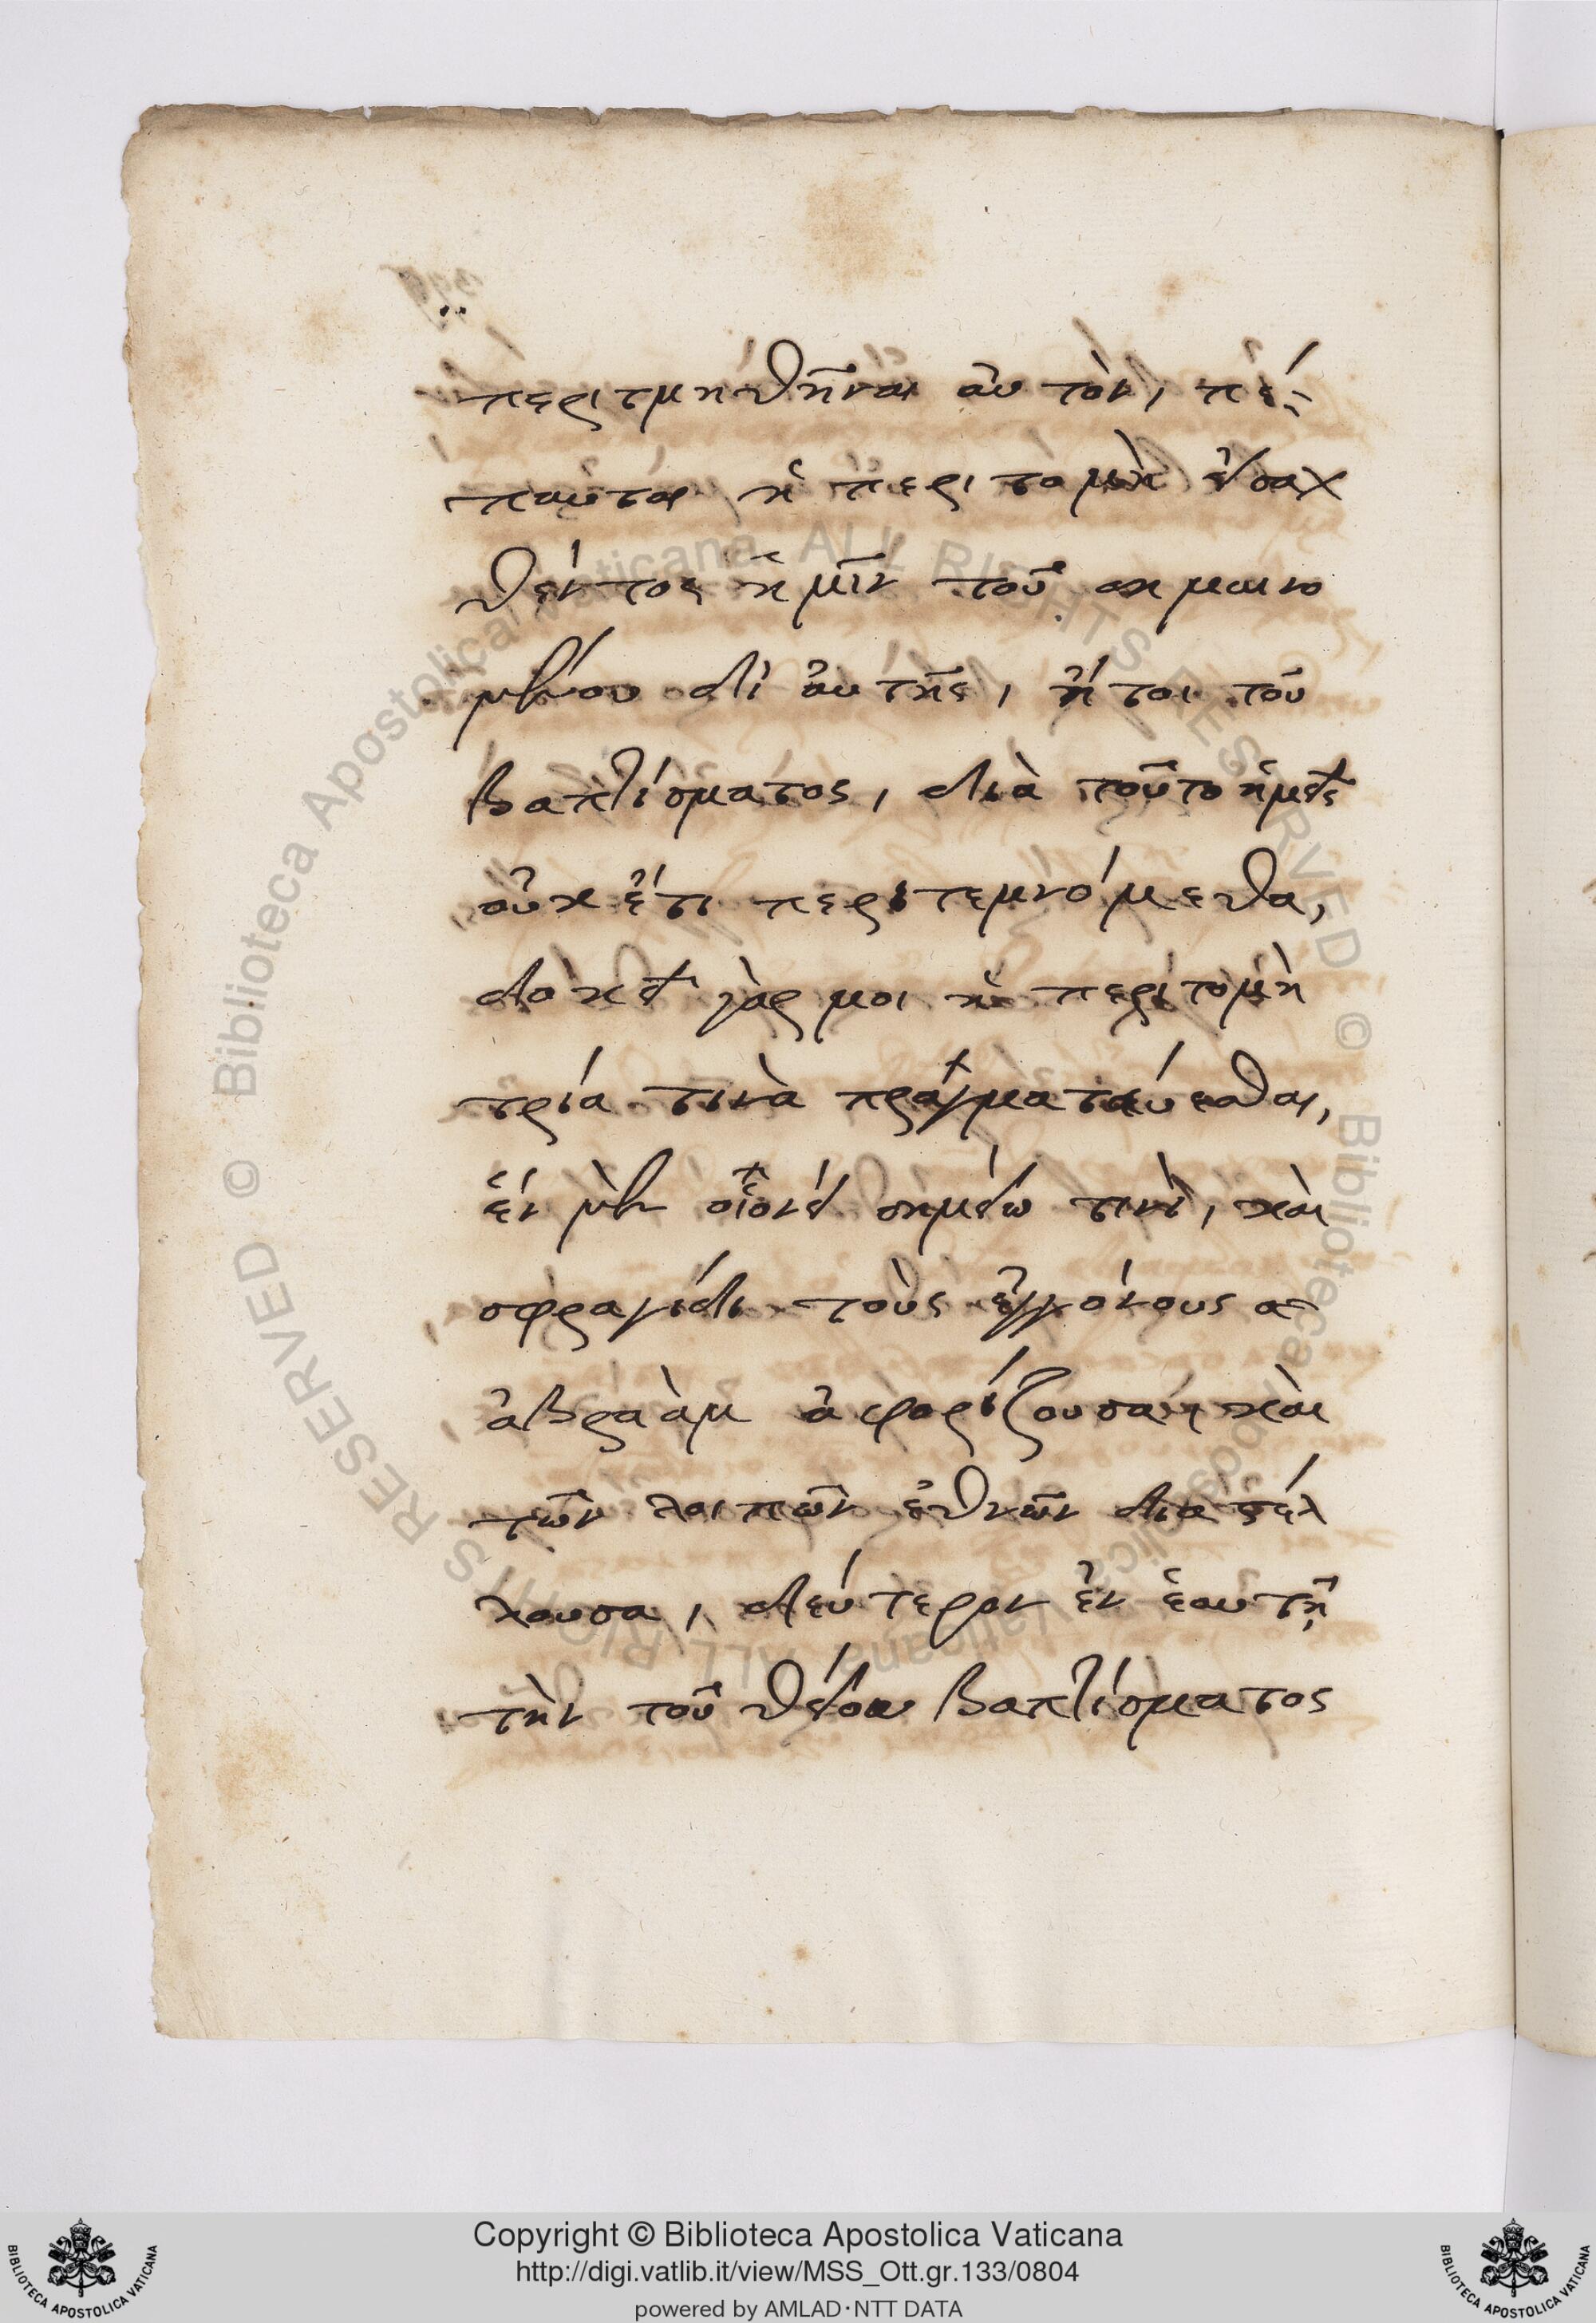 περιτμηθῆναι αὐτὸν, πέ-
παυται ἡ περιτομὴ εἰσαχ
θέντος ἡμῖν τοῦ σημαινο
μένου δι αὐτῆς, ἤτοι τοῦ
βαπτίσματος, διὰ τοῦτο ἡμεῖς
οὐκ ἔτι περιτεμνόμεθα,
δοκεῖ γὰρ μοι ἡ περιτομὴ
τρία τινὰ πραγματεύεσθαι,
ἓν μὲν οἷονεὶ σημείω τινὶ, καὶ
σφραγίδι τοὺς ἐγγόνους α
ἀβραὰμ ἀφορίζουσα, καὶ
τῶν λοιπῶν ἐθνῶν διαστέλ
λουσα, δεύτερον ἐν ἑαυτῆ
τὴν τοῦ θείου βαπτίσματος
© Biblioteca Apostolica Vaticana ALL RIGHTS RESERVED © Biblioteca Apostolica Vaticana ALL RIGHTS RESERVED
Copyright © Biblioteca Apostolica Vaticana
http://digi.vatlib.it/view/MSS_Ott.gr.133/0804
powered by AMLAD·NTT DATA
BIBLIOTECA APOSTOLICA VATICANA
BIBLIOTECA APOSTOLICA VATICANA